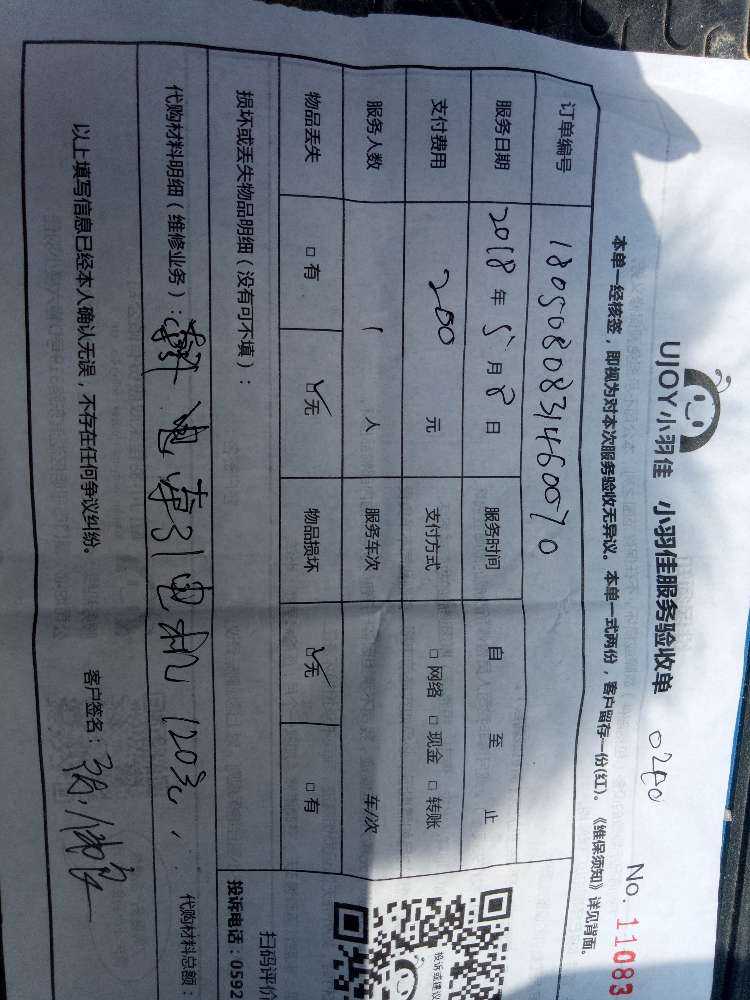 UJOY小羽佳 小羽佳服务验收单 0240
No. 11083
本单一经核签，即视为对本次服务验收无异议。本单一式两份，客户留存一份(红)。《维保须知》详见背面。
订单编号 1805080831460070
服务日期 2018年5月8日 服务时间 自 至 止
支付费用 200 元 支付方式 □网络 □现金 □转账
服务人数 1 人 服务车次 车/次
物品丢失 □有 ☑无 物品损坏 ☑无 □有
损坏或丢失物品明细（没有可不填）：
代购材料明细（维修业务）： 电 引电机 120元, 代购材料总额：
以上填写信息已经本人确认无误，不存在任何争议纠纷。
客户签名：
投诉或建议
扫码评价
投诉电话：0592